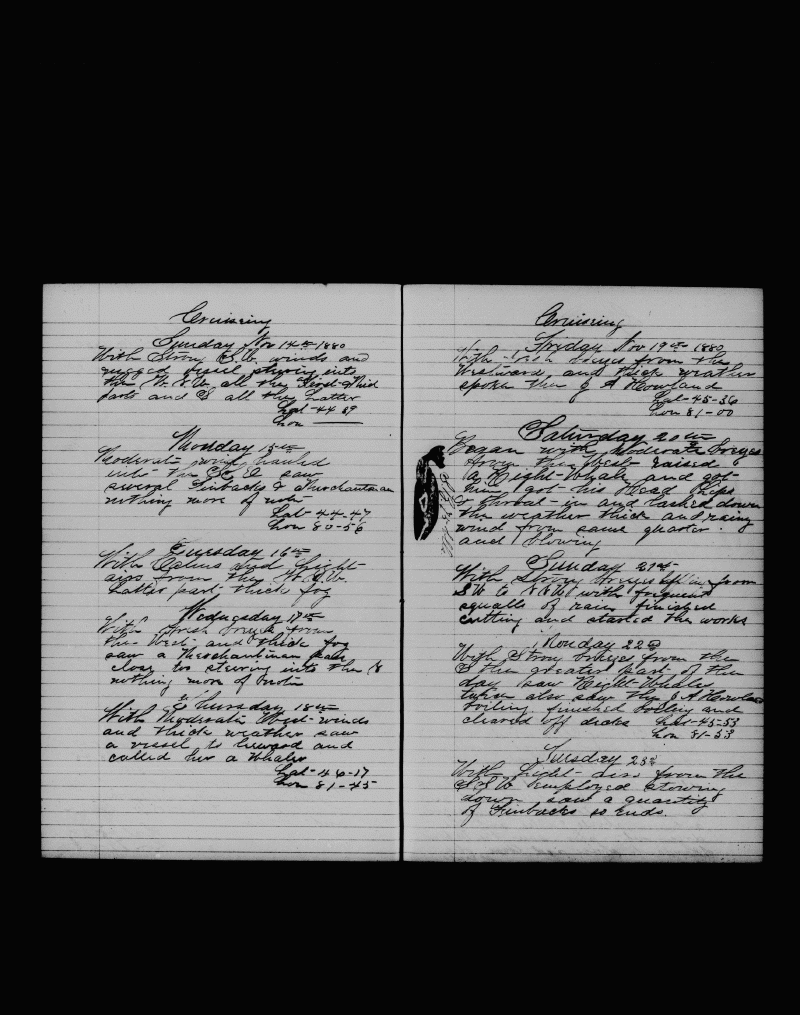 Cruising
Sunday Nov 14th 1880
With Strong S.W. winds and
rugged vessel steering into
the W.N.W. all the First & Third
parts and S all the Latter
Lat 44-29
Lon ———
Monday 15th
Moderate wind hauled
into the saw
several Finbacks & Merchantman
nothing more of note
Lat-44-47
Lon 80-56
Tuesday 16th
With Calms and Light
airs from the W.S.W.
Latter part thick fog
Wednesday 17th
With fresh breeze from
the West and thick fog
saw a Merchantman pass
close to steering into the
nothing more of note
Thursday 18th
With Moderate West winds
and thick weather saw
a vessel to leeward and
called her a Whaler
Lat-46-17
Lon 81-45
Cruising
Friday Nov 19th 1880
With fresh breezes from the
Westward and thick weather
spoke the J A Howland
Lat-45-36
Lon 81-00
Saturday 20th
Began with Moderate breezes
from the West raised
a Right Whale and got
him got his Head Lips
& throat in and lashed down
the weather thick and rainy
wind from same quarter
and blowing
Sunday 21st
With Strong breezes from
SW to NW with frequent
squalls of rain finished
cutting and started the works
Monday 22d
With Strong breezes from the
S the greater part of the
day saw Right Whales
twice also saw the J A Howland
boiling finished boiling and
cleared off decks Lat-45-53
Lon 81-53
Tuesday 23d
With Light airs from the
SSW Employed stowing
down saw a quantity
of Finbacks so Ends.